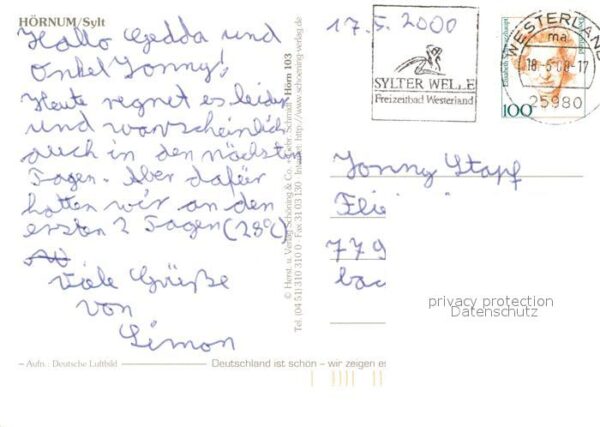 HÖRNUM/Sylt
Hallo Gedda und
Onkel Jonny!
Heute regnet es leider
und warscheinlich
auch in den nächsten
Tagen. Aber dafür
hatten wir an den
ersten 2 Tagen (28°C)
Viele Grüße
von
Simon
Aufn.: Deutsche Luftbild
Deutschland ist schön – wir zeigen es
© Herst. u. Verlag Schöning & Co. Schmidt · Hörn 103
Tel. (04 51) 310 310 0 · Fax 31 03 130 · Internet: http://www.schoening-verlag.de
17.5.2000
SYLTER WELLE
Freizeitbad Westerland
WESTERLAND
ma
18-5-00-17
25980
100
Jonny Stapf
Flie
779
bac
privacy protection
Datenschutz